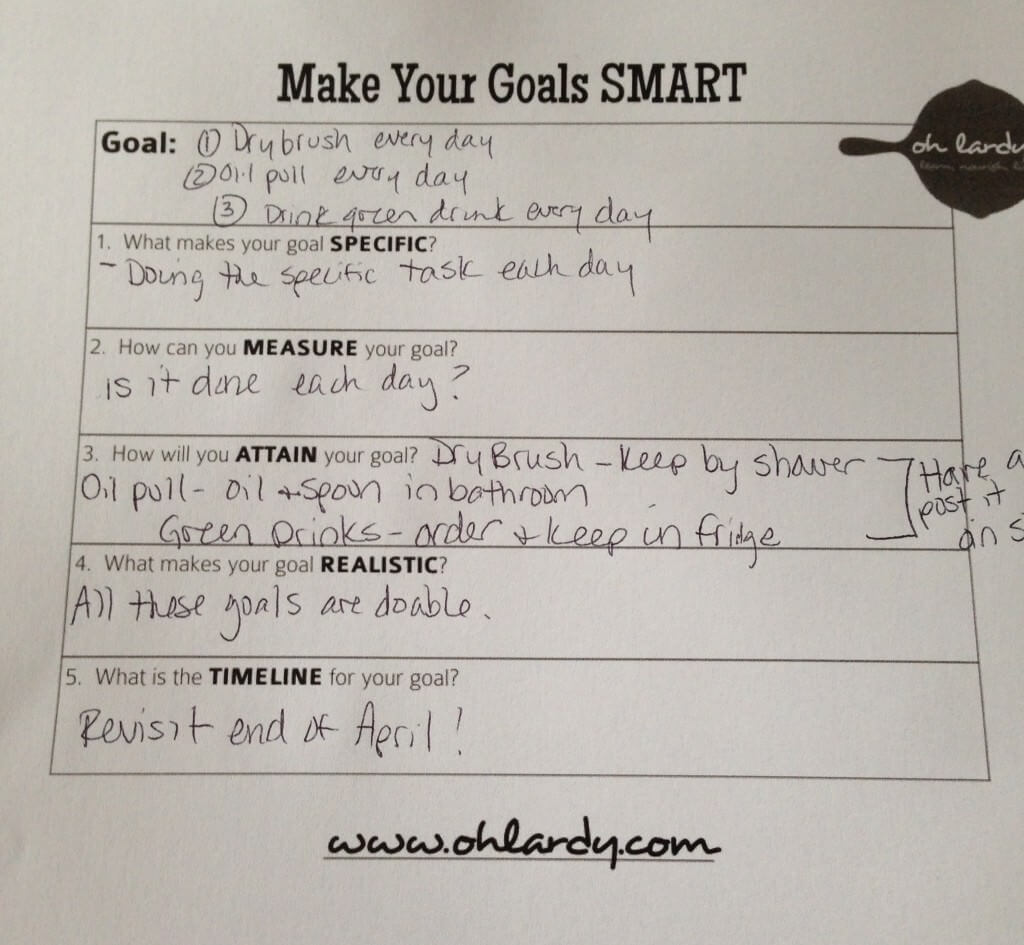 Make Your Goals SMART
oh lardy
Goal: ① Dry brush every day
② Oil pull every day
③ Drink green drink every day
1. What makes your goal SPECIFIC?
- Doing the specific task each day
2. How can you MEASURE your goal?
is it done each day?
3. How will you ATTAIN your goal? Dry Brush - keep by shower
Oil pull - oil + spoon in bathroom
Green Drinks - order + keep in fridge
Have a
post it
on s
4. What makes your goal REALISTIC?
All these goals are doable.
5. What is the TIMELINE for your goal?
Revisit end of April!
www.ohlardy.com